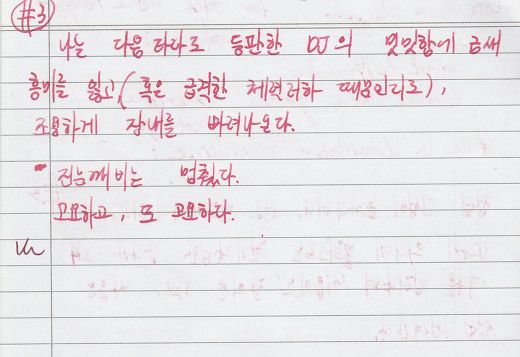 #3
나는 다음 타자로 등판한 DJ의 밋밋함에 금새
흥미를 잃고, (혹은 급격한 체력저하 때문인지도),
조용하게 장내를 빠져나온다.
진눈깨비는 멈췄다.
고요하고, 또 고요하다.